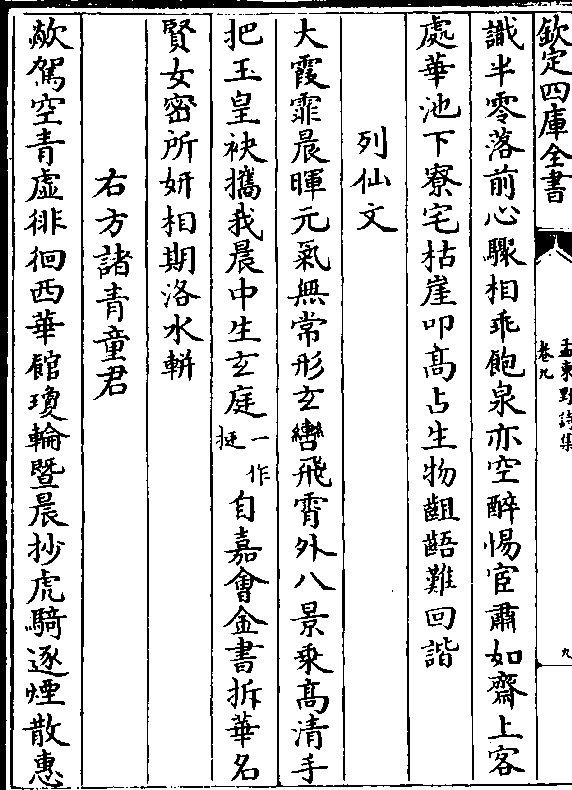 欽定四庫全書
孟東野詩集
卷九
九
識半零落前心驟相乖飽泉亦空醉惕宦肅如齋上客
處華池下寮宅枯崖叩髙占生物齟齬難回諧
列仙文
大霞霏晨暉元氣無常形玄轡飛霄外八景乗髙清手
把玉皇袂攜我晨中生玄庭一作挺自嘉㑹金書拆華名
賢女密所妍相期洛水軿
右方諸青童君
欻駕空青虛徘徊西華館瓊輪暨晨抄虎騎逐煙散惠